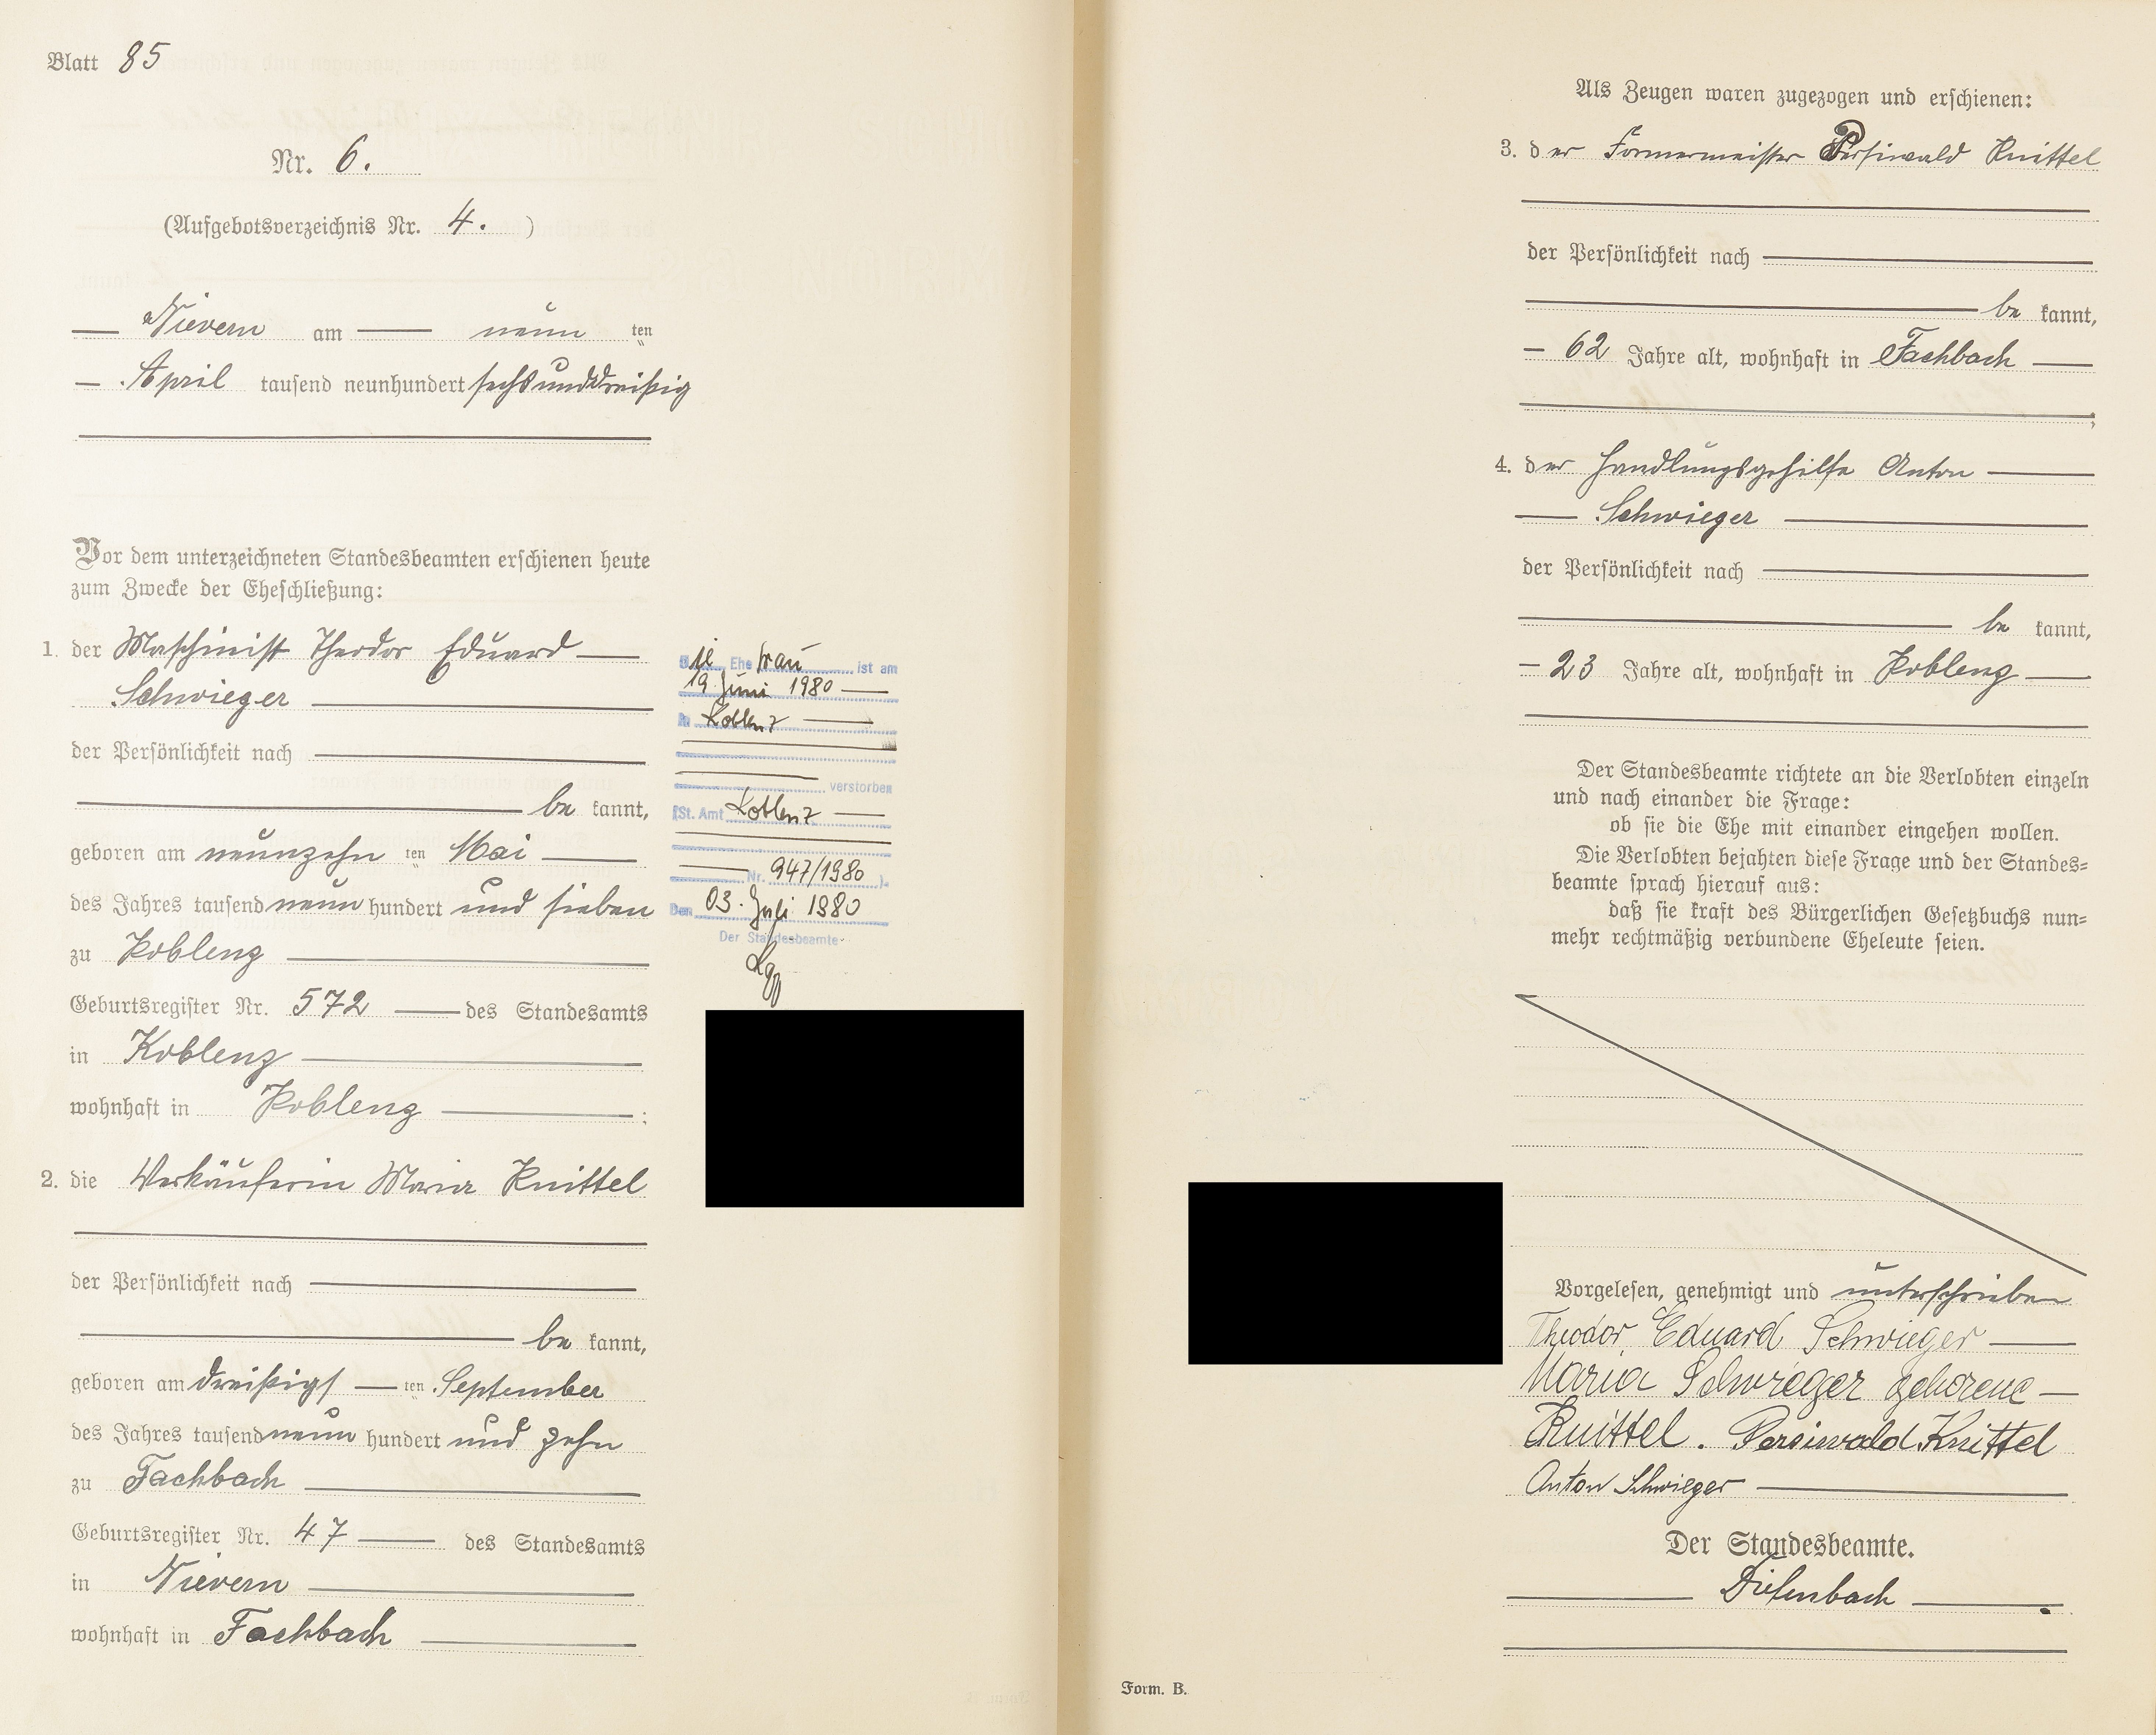 Blatt 85
Nr. 6.
(Aufgebotsverzeichnis Nr. 4. )
Nievern am neun ten
April tausend neunhundert sechsunddreißig
Vor dem unterzeichneten Standesbeamten erschienen heute
zum Zwecke der Eheschließung:
1. der Maschinist Theodor Eduard
Schwieger
der Persönlichkeit nach
be kannt,
geboren am neunzehn ten Mai
des Jahres tausend neun hundert und sieben
zu Koblenz
Geburtsregister Nr. 572 des Standesamts
in Koblenz
wohnhaft in Koblenz ;
2. die Verkäuferin Maria Knittel
der Persönlichkeit nach
be kannt,
geboren am dreißigs ten September
des Jahres tausend neun hundert und zehn
zu Fachbach
Geburtsregister Nr. 47 des Standesamts
in Nievern
wohnhaft in Fachbach
Ehe frau ist am
19. Juni 1980
In Koblenz
verstorben
(St. Amt Koblenz
Nr. 947/1980 ).
Den 03. Juli 1980
Der Standesbeamte
Als Zeugen waren zugezogen und erschienen:
3. der Formermeister Persiwald Knittel
der Persönlichkeit nach
be kannt,
62 Jahre alt, wohnhaft in Fachbach
;
4. der Handlungsgehilfe Anton
Schwieger
der Persönlichkeit nach
be kannt,
23 Jahre alt, wohnhaft in Koblenz
Der Standesbeamte richtete an die Verlobten einzeln
und nach einander die Frage:
ob sie die Ehe mit einander eingehen wollen.
Die Verlobten bejahten diese Frage und der Standes=
beamte sprach hierauf aus:
daß sie kraft des Bürgerlichen Gesetzbuchs nun=
mehr rechtmäßig verbundene Eheleute seien.
Vorgelesen, genehmigt und unterschrieben
Theodor Eduard Schwieger
Maria Schwieger geborene
Knittel. Persiwald Knittel
Anton Schwieger
Der Standesbeamte.
Diefenbach
Form. B.